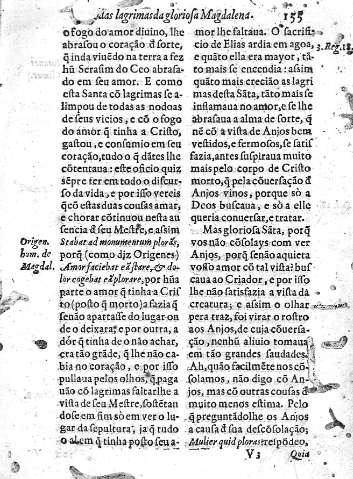 Mas lagrimas da gloriosa Magdalena. 155
o fogo do amor diuino, lhe
abrasou o coração d̃ sorte,
q̃ inda viuẽdo na terra a fez
hũ Serafim do Ceo abrasa-
do em seu amor. E como
esta Santa cõ lagrimas se a-
limpou de todas as nodoas
de seus vicios, e cõ o fogo
do amor q̃ tinha a Cristo,
gastou, e consumio em seu
coração, tudo o q̃ dãtes lhe
cõtentaua: este oficio quiz
sẽpre ter em todo o discur-
so da vida, e por isso vereis
q̃ cõ estas duas cousas amar,
e chorar cõtinuou nesta au
sencia d̃ seu Mestre, e assim
Stabat ad monumentum plorãs,
porq̃ (como diz Origenes)
Amor faciebat eã stare, & do-
lor cogebat eã plorare, por hũa
parte o amor q̃ tinha a Cris
to (posto q̃ morto) a fazia q̃
senão apartasse do lugar on
de o deixara: e por outra, a
dór q̃ tinha de o não achar,
era tão grãde, q̃ lhe não ca-
bia no coração, e por isso
pullaua pelos olhos, q̃ paga
não cõ lagrimas faltarlhe a
vista de seu Mestre, sostẽtan
dose em fim só em ver o lu-
gar da sepultura, ja q̃ tudo
o alem q̃ tinha posto seu a-
Origen.
hom. de
Magdal.
mor lhe faltaua. O sacrifi-
cio de Elias ardia em agoa,
e quãto ella era mayor, tã-
to mais se encendia: assim
quãto mais crecião as lagri
mas desta Sãta, tãto mais se
inflamaua no amor, e se lhe
abrasaua a alma de sorte, q̃
nẽ cõ a vista de Anjos bem
vestidos, e fermosos, se satis
fazia, antes suspiraua muito
mais pelo corpo de Cristo
morto, q̃ pela cõuersação d̃
Anjos vinos, porque só a
Deos buscaua, e só a elle
queria conuersar, e tratar.
Mas gloriosa Sãta, porq̃
vos não cõsolays com ver
Anjos, porq̃ senão aquieta
vosso amor cõ tal vista? bus
caua ao Criador, e por isso
lhe não satisfazia a vista dá
creatura; e assim o olhar
pera traz, foi virar o rostro
aos Anjos, de cuja cõuersa-
ção, nenhũ aliuio tomaua
em tão grandes saudades.
Ah, quão facilmẽte nos cõ-
solamos, não digo cõ An-
jos, mas cõ outras cousas d̃
muito menos estima. Pelo
q̃ preguntãdolhe os Anjos
a causa de sua descõsolação;
Mulier quid ploras: respõdeo,
3. Reg. 18.
V 3 Quia